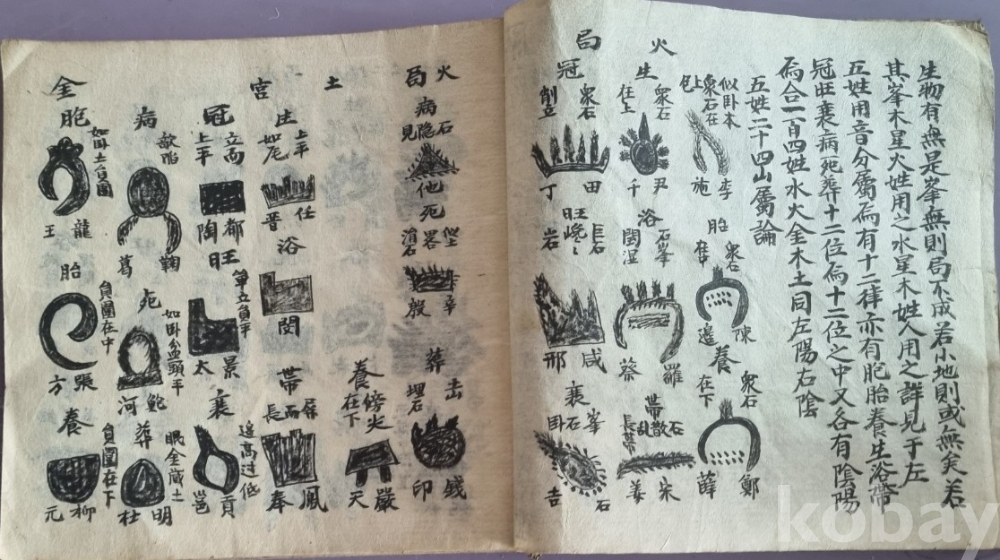 生物有無是峯無則局不成若小地則或無矣若
其峯木星火姓用之水星木姓人用之詳見于左
五姓用音分屬焉有十二律亦有胞胎養生浴帶
冠旺衰病死葬十二位焉十二位之中又各有陰陽
焉合一百四姓水火金木土同左陽右陰
五姓二十四山屬論
火
局
似卧本
衆石在
上
包
李
施
胎
衆石
在
陳
邊
養
衆石
在下
鄭
薛
生
衆石
在上
尹
千
浴
石峯
閏湿
羅
蔡
帶
石
散
乱
長帶
宋
姜
冠
衆石
削立
田
丁
旺
巨石
巉々
岩
咸
邢
衰
峯
石
卦
石
吉
火
局
病
石
隐
見
他
死
石
畧
殷
辛
葬
击
石
埋
錢
印
土
宮
生
上平
如尾
任
晉
浴
閔
帶
屏
而
長
鳳
奉
養
傍火
在下
嚴
天
冠
立而
上平
都
陶
旺
單立負平
景
太
衰
進高过低
貢
邕
病
欹陷
鞠
葛
死
如卧盆頭平
鮑
河
葬
眠金蔵土
明
杜
金
胞
如卧土負圓
龍
王
胎
負圓在中
張
方
養
負圓在下
柳
元
kobay